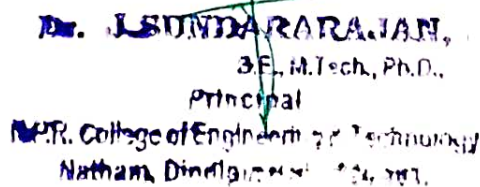 Dr. J.SUNDARARAJAN,
B.E., M.Tech., Ph.D.,
Principal
N.P.R. College of Engineering & Technology
Natham, Dindigul